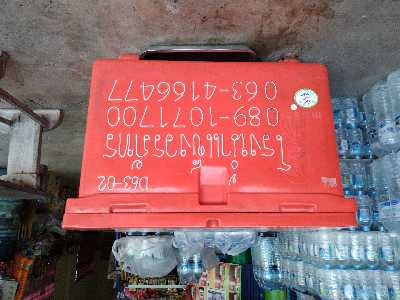 D63-02
โรงน้ำแข็งวรภัทร
089-1071700
063-4166477